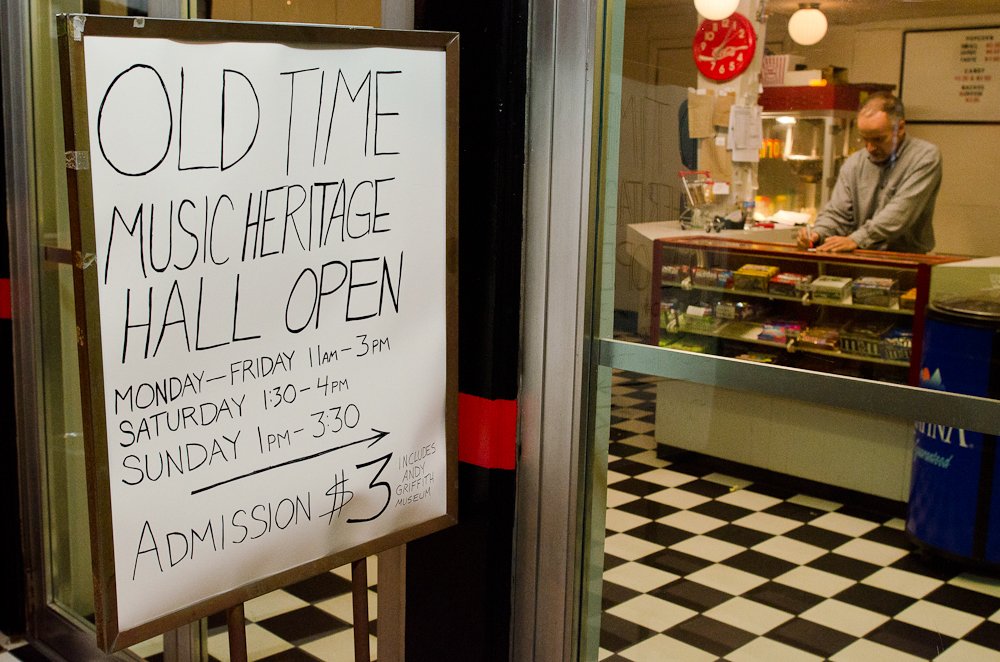 OLD TIME
MUSIC HERITAGE
HALL OPEN
MONDAY—FRIDAY 11AM–3PM
SATURDAY 1:30–4PM
SUNDAY 1PM–3:30
ADMISSION $3
INCLUDES
ANDY
GRIFFITH
MUSEUM
POPCORN
CANDY